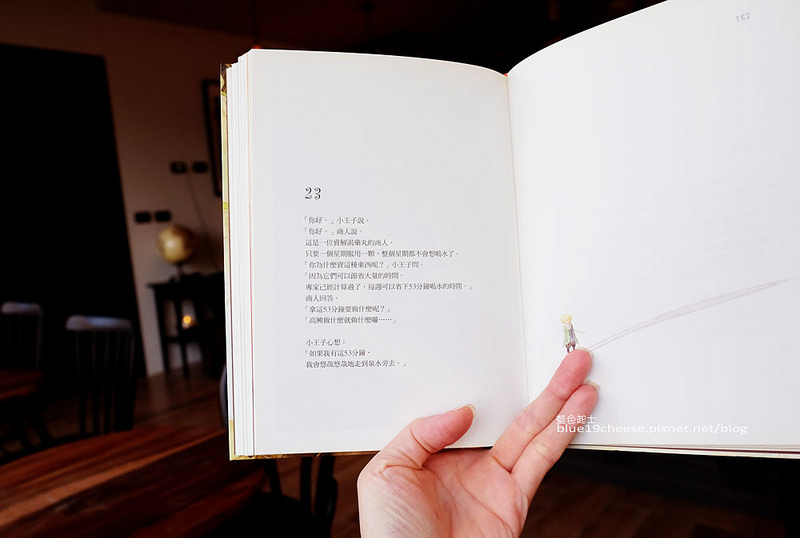 23
「你好。」小王子說。
「你好。」商人說。
這是一位賣解渴藥丸的商人。
只要一個星期服用一顆，整個星期都不會想喝水了。
「你為什麼賣這種東西呢？」小王子問。
「因為它們可以節省大量的時間。
專家已經計算過了，每週可以省下53分鐘喝水的時間。」
商人回答。
「拿這53分鐘要做什麼呢？」
「高興做什麼就做什麼囉……」
小王子心想：
「如果我有這53分鐘，
我會悠哉悠哉地走到泉水旁去。」
187
藍色起士
blue19cheese.pixnet.net/blog